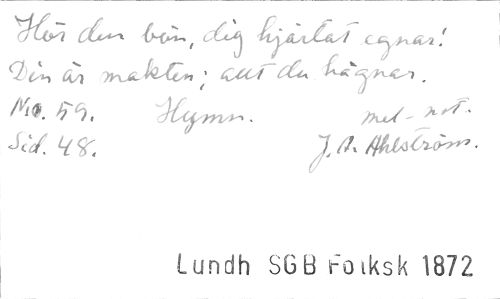 Hör den bön, dig hjärtat egnar!
Din är makten; allt du hägnar.
No. 59. Hymn. mel-not.
Sid. 48. J. A. Ahlström.
Lundh SGB Folksk 1872